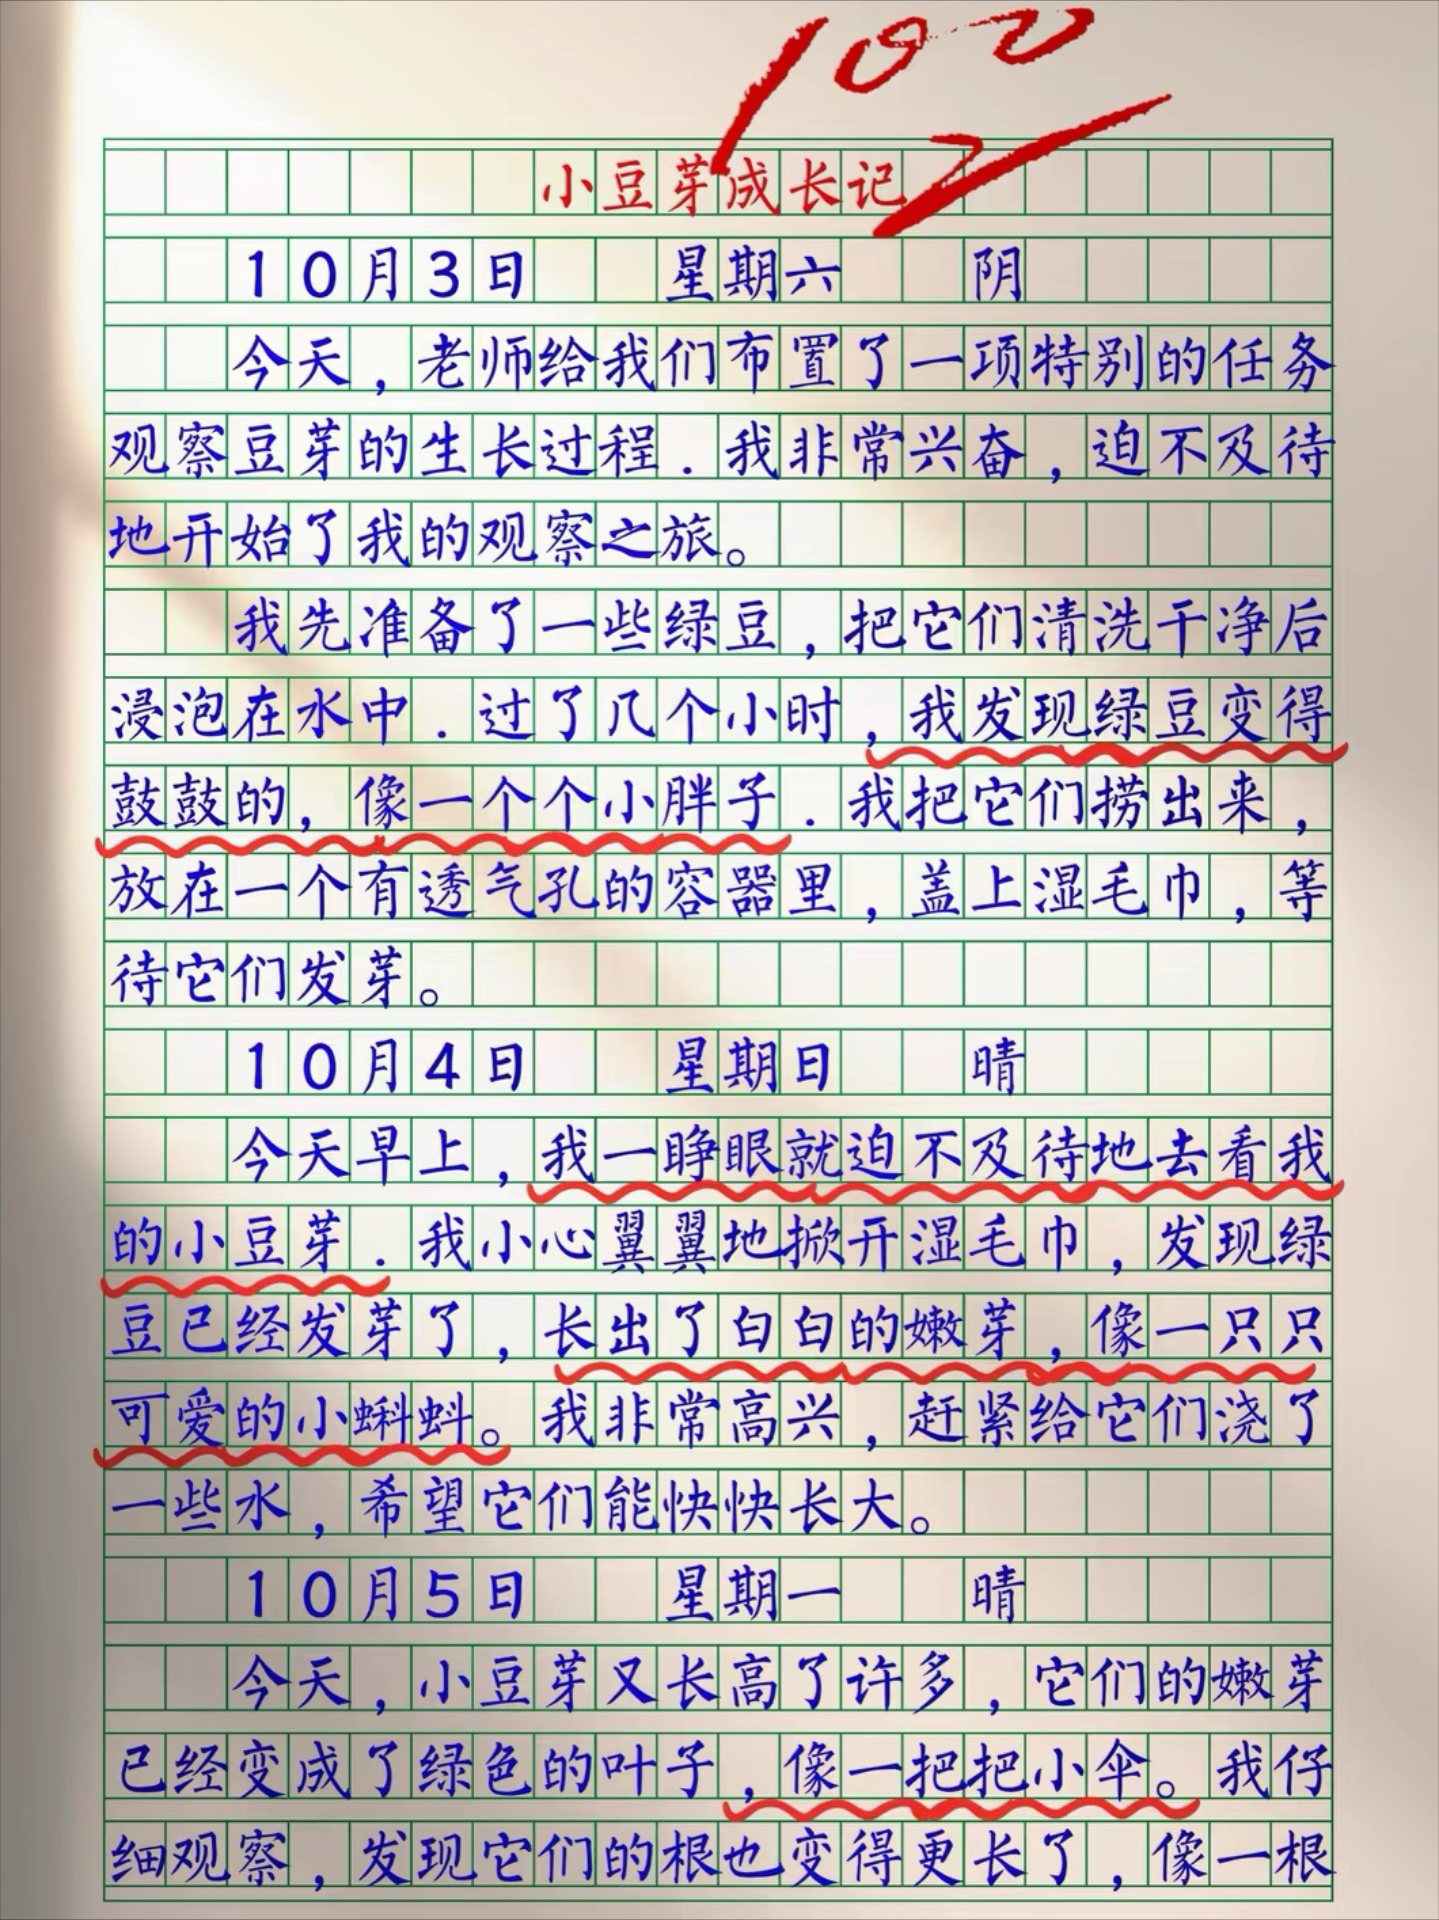 100
小豆芽成长记
10月3日 星期六 阴
今天，老师给我们布置了一项特别的任务
观察豆芽的生长过程．我非常兴奋，迫不及待
地开始了我的观察之旅。
我先准备了一些绿豆，把它们清洗干净后
浸泡在水中．过了几个小时，我发现绿豆变得
鼓鼓的，像一个个小胖子．我把它们捞出来，
放在一个有透气孔的容器里，盖上湿毛巾，等
待它们发芽。
10月4日 星期日 晴
今天早上，我一睁眼就迫不及待地去看我
的小豆芽．我小心翼翼地掀开湿毛巾，发现绿
豆已经发芽了，长出了白白的嫩芽，像一只只
可爱的小蝌蚪。我非常高兴，赶紧给它们浇了
一些水，希望它们能快快长大。
10月5日 星期一 晴
今天，小豆芽又长高了许多，它们的嫩芽
已经变成了绿色的叶子，像一把把小伞。我仔
细观察，发现它们的根也变得更长了，像一根